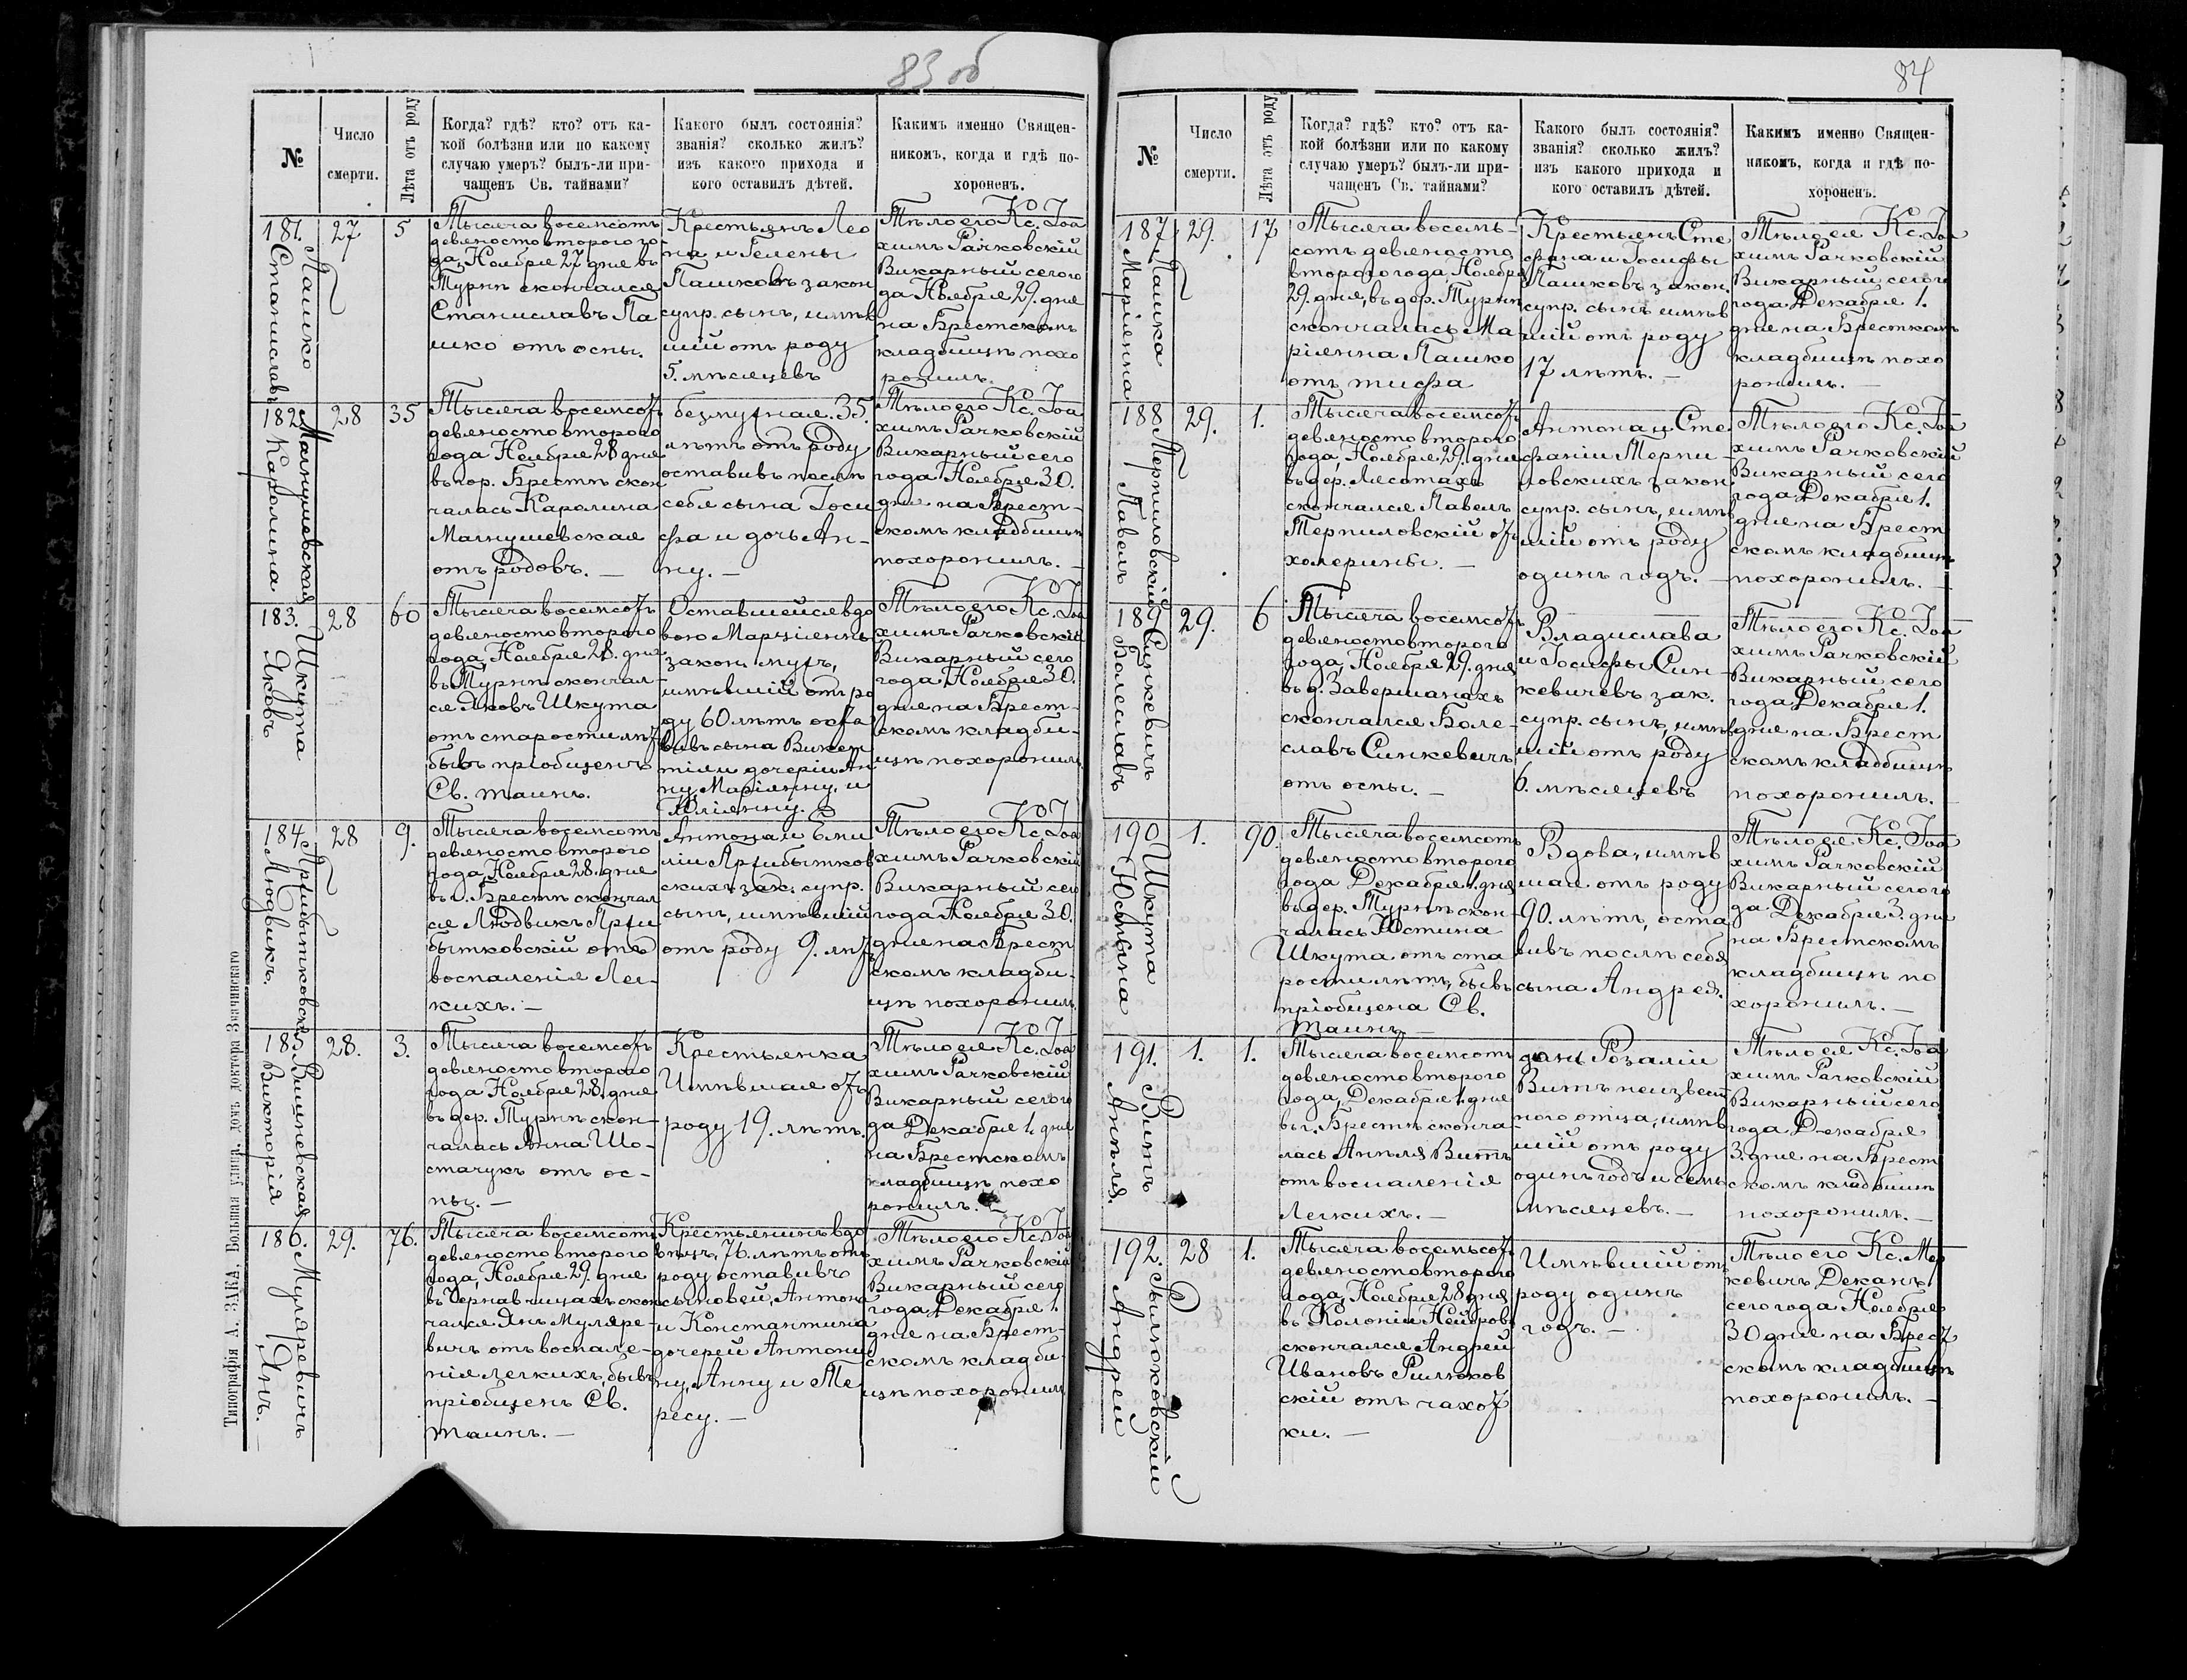 83 об
№
Число
смерти.
Лѣта отъ роду
Когда? гдѣ? кто? отъ ка-
кой болѣзни или по какому
случаю умеръ? былъ-ли при-
чащенъ Св. тайнами?
Какого былъ состоянія?
званія? сколько жилъ?
изъ какого прихода и
кого оставилъ дѣтей.
Какимъ именно Священ-
никомъ, когда и гдѣ по-
хороненъ.
181.
Пашко
Станиславъ
27
5
Тысяча восемсотъ
девяностовтораго го
да, Ноября 27 дня въ
Турнѣ скончался
Станиславъ Па
шко отъ оспы.
Крестьянъ Лео
на и Гелены
Пашковъ закон
супр. сынъ, имѣв
шій отъ роду
5. мѣсяцевъ
Тѣло его Кс. Іоа
химъ Рачковскій
Викарный сего го
да Ноября 29. дня
на Брестскомъ
кладбищѣ похо
ронилъ.
182.
Магнушевская
Каролина
28
35
Тысяча восемсотъ
девяностовтораго
года Ноября 28 дня
въ гор. Брестѣ скон
чалась Каролина
Магнушевская
отъ родовъ. —
безмужная. 35.
лѣтъ отъ роду
оставивъ послѣ
себя сына Іоси
фа и дочь Ан-
ну. —
Тѣло его Кс. Іоа
химъ Рачковскій
Викарный сего
года Ноября 30.
дня на Брест-
скомъ кладбищѣ
похоронилъ. —
183.
Шкута
Яковъ
28
60
Тысяча восемсотъ
девяностовтораго
года, Ноября 28. дня
въ Турнѣ скончал-
ся Яковъ Шкута
отъ старости лѣтъ
бывъ пріобщенъ
Св. таинъ.
Оставшейся вдо
вою Марціанны
закон. мужъ,
имѣвшій отъ ро
ду 60 лѣтъ оста
вивъ сына Викен
тія и дочерій Ан
ну, Маріанну, и
Юліянну.
Тѣло его Кс. Іоа
химъ Рачковскій
Викарный сего
года, Ноября 30.
дня на Брест-
скомъ кладби-
щѣ похоронилъ.
184.
Пршибытковскій
Людвикъ.
28
9.
Тысяча восемсотъ
девяностовтораго
года, Ноября 28. дня
въ г. Брестѣ скончал
ся Людвикъ Прши
бытковскій отъ
воспаленія Лег-
кихъ. —
Антона и Еми
ліи Пршибытков
скихъ зак. супр.
сынъ, имѣвшій
отъ роду 9. лѣтъ
Тѣло его Кс. Іоа
химъ Рачковскій
Викарный сего
года Ноября 30.
дня на Брест
скомъ кладби-
щѣ похоронилъ.
185.
Вишневская
Викторія
28.
3.
Тысяча восемсотъ
девяностовтораго
года Ноября 28. дня
въ дер. Турнѣ скон-
чалась Анна Шо-
стачукъ отъ ос-
пы. —
Крестьянка
Имѣвшая отъ
роду 19. лѣтъ.
Тѣло ея Кс. Іоа
химъ Рачковскій
Викарный сего го
да Декабря 1. дня
на Брестскомъ
кладбищѣ похо
ронилъ. —
186.
Муляревичъ
Янъ. —
29.
76.
Тысяча восемсотъ
девяностовтораго
года, Ноября 29. дня
въ Чернавчицахъ скон
чался Янъ Муляре-
вичъ отъ воспале-
нія легкихъ, бывъ
пріобщенъ Св.
таинъ. —
Крестьянинъ вдо
вецъ, 76. лѣтъ отъ
роду оставивъ
сыновей, Антона
и Константина
дочерей Антони
ну, Анну и Те
ресу. —
Тѣло его Кс. Іоа
химъ Рачковскій
Викарный сего
года, Декабря 1.
дня на Брест-
скомъ кладби-
щѣ похоронилъ
Типографія А. ЗАКА, Большая улица, домъ доктора Значинскаго
84
№
Число
смерти.
Лѣта отъ роду
Когда? гдѣ? кто? отъ ка-
кой болѣзни или по какому
случаю умеръ? былъ-ли при-
чащенъ Св. тайнами?
Какого былъ состоянія?
званія? сколько жилъ?
изъ какого прихода и
кого оставилъ дѣтей.
Какимъ именно Священ-
никомъ, когда и гдѣ по-
хороненъ.
187
Пашка
Маріенна
29.
17
Тысяча восемь-
сотъ девяносто
втораго года, Ноября
29. дня, въ дер. Турнѣ
скончалась Ма
ріянна Пашко
отъ тифа
Крестьянъ Сте
фана и Іосифы
Пашковъ закон.
супр. сынъ имѣв
шій отъ роду
17 лѣтъ. —
Тѣло ея Кс. Іоа
химъ Рачковскій
Викарный сего
года Декабря 1.
дня на Бресткомъ
кладбищѣ похо
ронилъ. —
188
Терпиловскій
Павелъ
29.
1.
Тысяча восемсотъ
девяностовтораго
года, Ноября 29. дня
въ дер. Лесотахъ
скончался Павелъ
Терпиловскій отъ
холерины. —
Антона и Сте
фаніи Терпи-
ловскихъ закон
супр. сынъ, имѣв
шій отъ роду
одинъ годъ. —
Тѣло его Кс. Іоа
химъ Рачковскій
Викарный сего
года Декабря 1.
дня на Брест
скомъ кладбищѣ
похоронилъ. —
189
Синкевичъ
Болеславъ
29.
6
Тысяча восемсотъ
девяностовтораго
года, Ноября 29. дня
въ д. Завершанахъ
скончался Боле-
славъ Синкевичъ
отъ оспы. —
Владислава
и Іосифы Син-
кевичевъ зак.
супр. сынъ, имѣв
шій отъ роду
6. мѣсяцевъ
Тѣло его Кс. Іоа
химъ Рачковскій
Викарный сего
года Декабря 1.
дня на Брест
скомъ кладбищѣ
похоронилъ. —
190
Шкута
Юстына
1.
90.
Тысяча восемсотъ
девяностовтораго
года Декабря 1. дня
въ дер. Турнѣ скон
чалась Юстина
Шкута отъ ста
рости лѣтъ, бывъ
пріобщена Св.
Таинъ. —
Вдова, имѣв
шая отъ роду
90. лѣтъ, оста
вивъ послѣ себя
сына Андрея.
Тѣло ея Кс. Іоа
химъ Рачковскій
Викарный сего го
да Декабря 3. дня
на Брестскомъ
кладбищѣ по
хоронилъ. —
191.
Витъ
Анѣля.
1.
1.
Тысяча восемсотъ
девяностовтораго
года, Декабря 1. дня
въ г. Брестѣ сконча
лась Анѣля Витъ
отъ воспаленія
Легкихъ. —
дочь Розаліи
Витъ неизвест
ного отца, имѣв
шій отъ роду
одинъ годъ и семь
мѣсяцевъ. —
Тѣло ея Кс. Іоа
химъ Рачковскій
Викарный сего
года Декабря
3. дня на Брест
скомъ кладбищѣ
похоронилъ. —
192.
Рылюковскій
Андрей
28
1.
Тысяча восемьсотъ
девяностовтораго
года, Ноября 28 дня
въ Колоніи Нейдровъ
скончался Андрей
Ивановъ Рилюков
скій отъ чахот
ки. —
Имѣвшій отъ
роду одинъ
годъ. —
Тѣло его Кс. Мер
кевичъ Деканъ
сего года Ноября
30 дня на Брест
скомъ кладбищѣ
похоронилъ. —